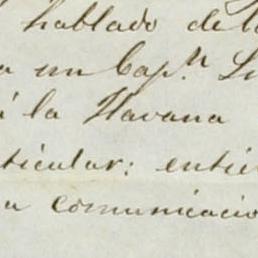 hablado de
a un Cap.n
á la Havana
ticular: entie
a comunicacio